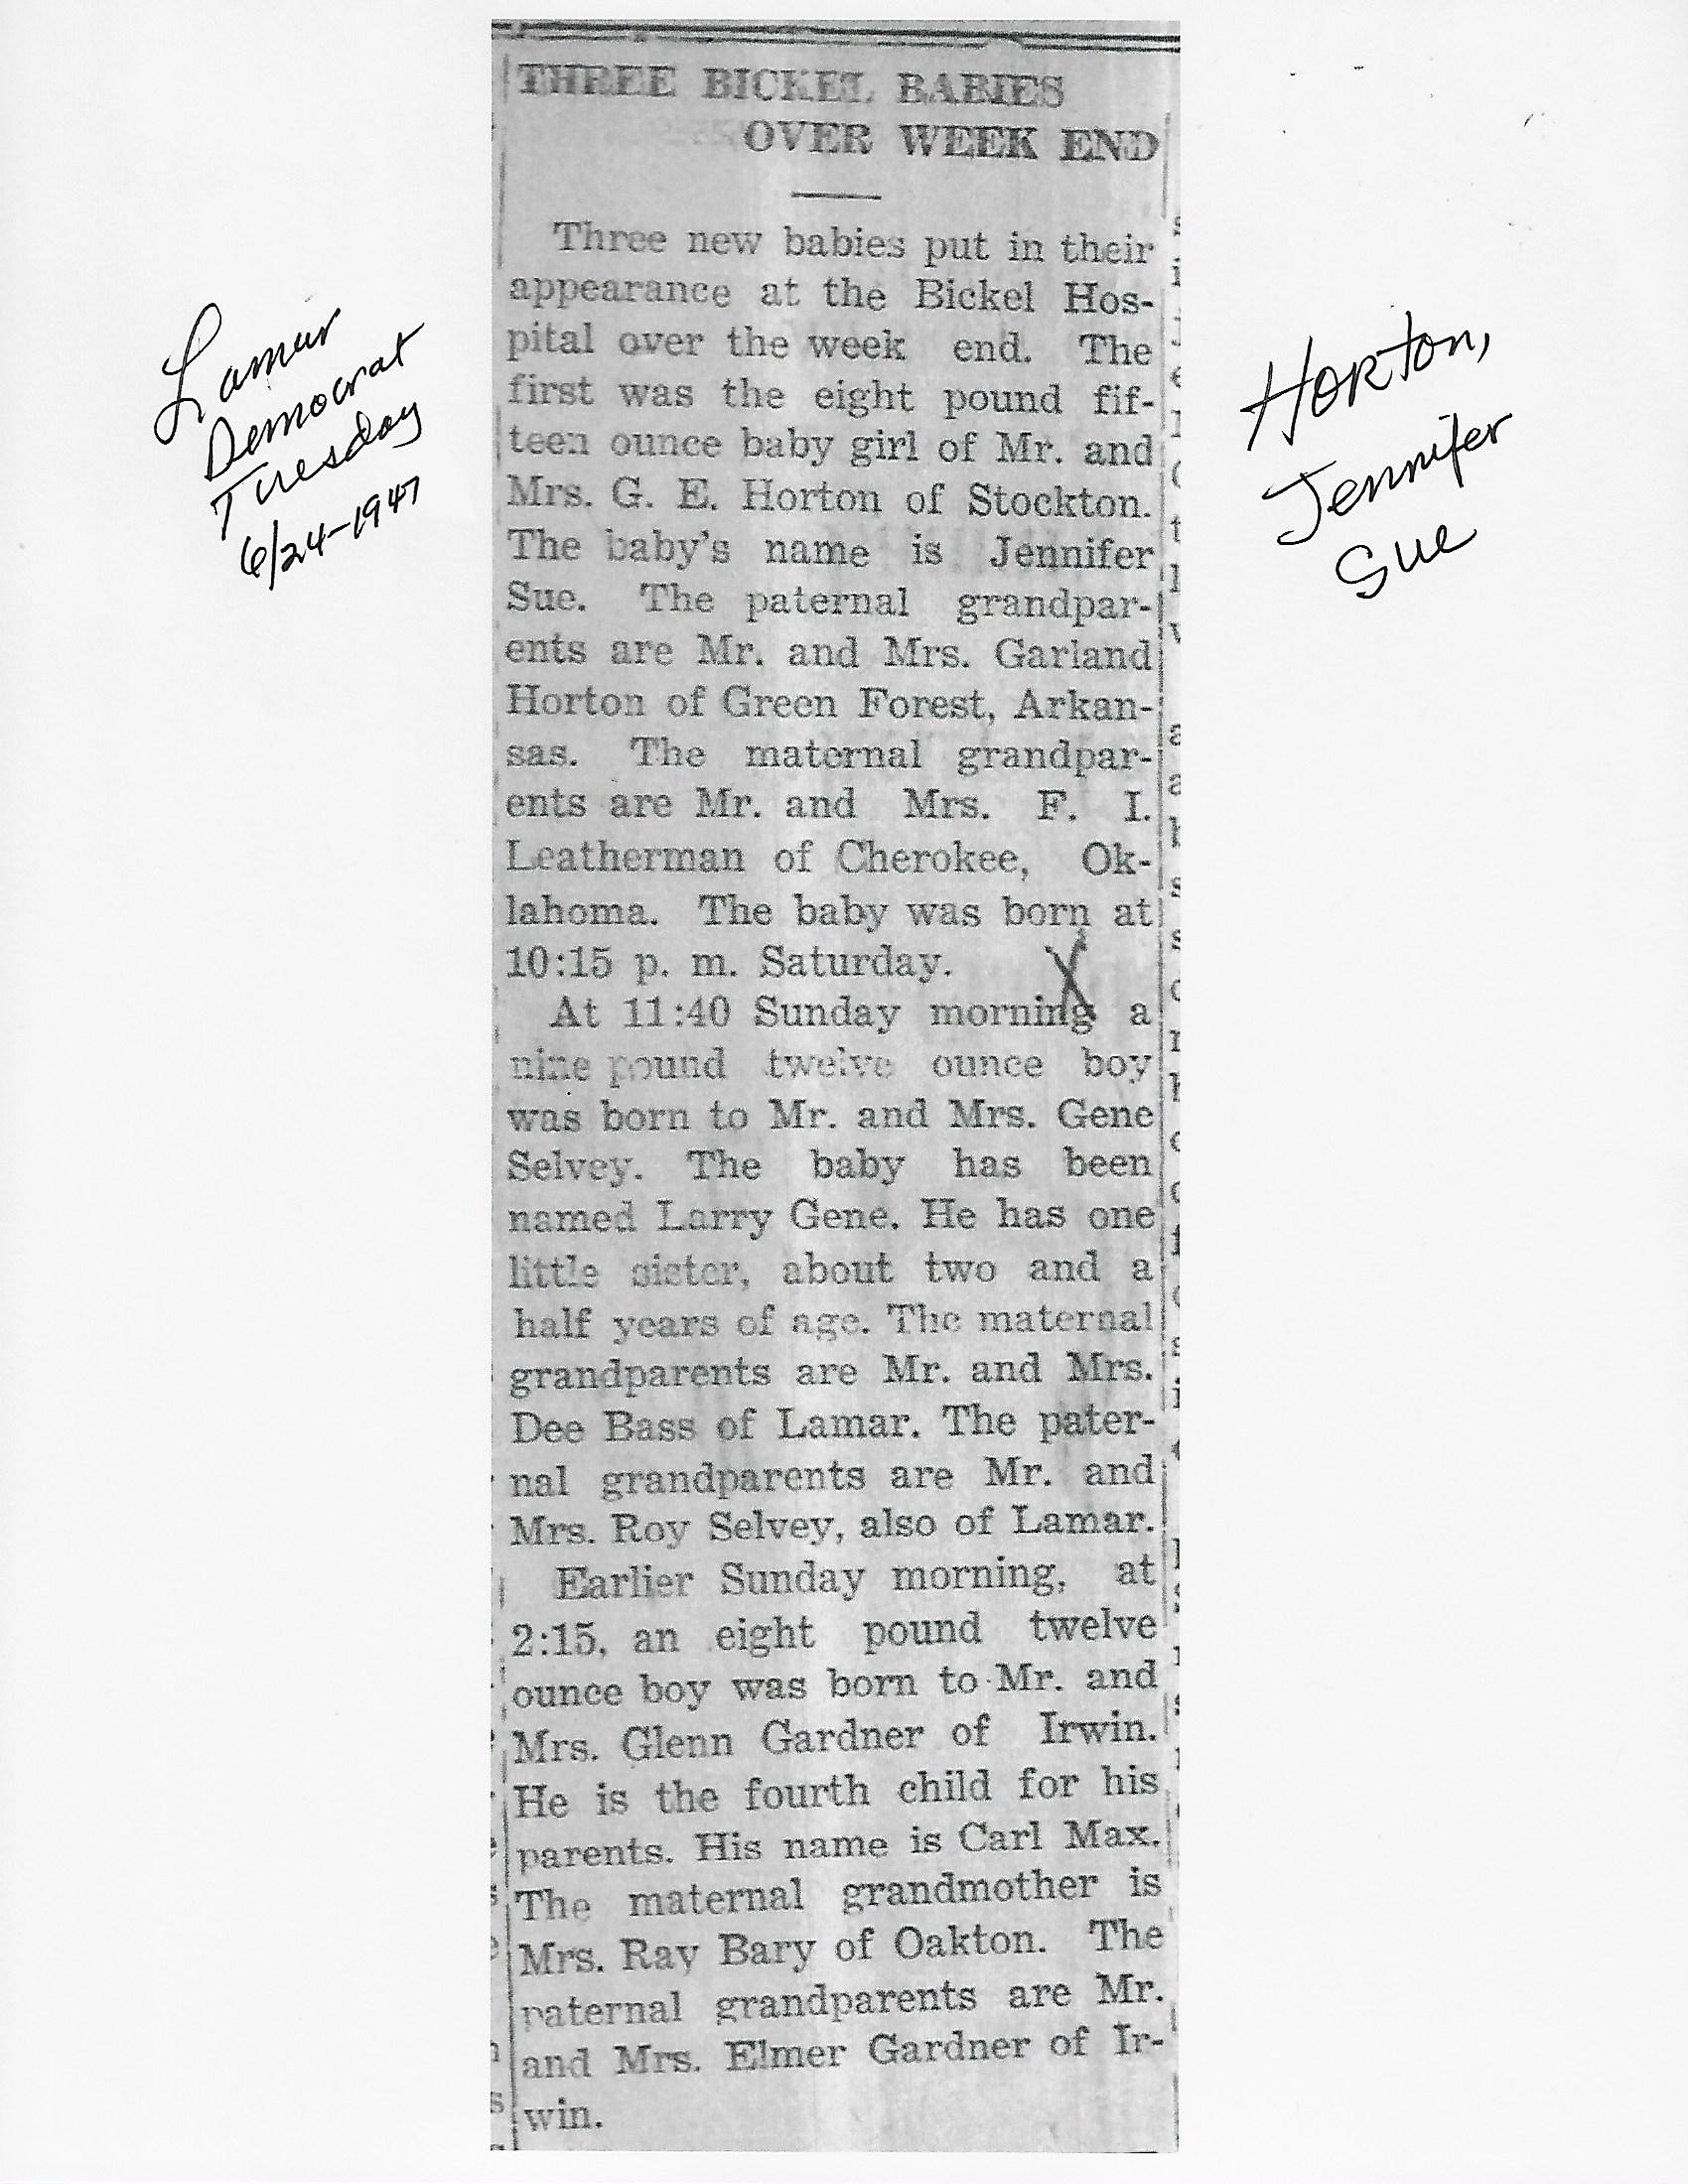 Lamar
Democrat
Tuesday
6/24-1947
Horton,
Jennifer
Sue
THREE BICKEL BABIES
OVER WEEK END
Three new babies put in their
appearance at the Bickel Hos-
pital over the week end. The
first was the eight pound fif-
teen ounce baby girl of Mr. and
Mrs. G. E. Horton of Stockton.
The baby's name is Jennifer
Sue. The paternal grandpar-
ents are Mr. and Mrs. Garland
Horton of Green Forest, Arkan-
sas. The maternal grandpar-
ents are Mr. and Mrs. F. I.
Leatherman of Cherokee, Ok-
lahoma. The baby was born at
10:15 p. m. Saturday.
At 11:40 Sunday morning a
nine pound twelve ounce boy
was born to Mr. and Mrs. Gene
Selvey. The baby has been
named Larry Gene. He has one
little sister, about two and a
half years of age. The maternal
grandparents are Mr. and Mrs.
Dee Bass of Lamar. The pater-
nal grandparents are Mr. and
Mrs. Roy Selvey, also of Lamar.
Earlier Sunday morning, at
2:15, an eight pound twelve
ounce boy was born to Mr. and
Mrs. Glenn Gardner of Irwin.
He is the fourth child for his
parents. His name is Carl Max.
The maternal grandmother is
Mrs. Ray Bary of Oakton. The
paternal grandparents are Mr.
and Mrs. Elmer Gardner of Ir-
win.